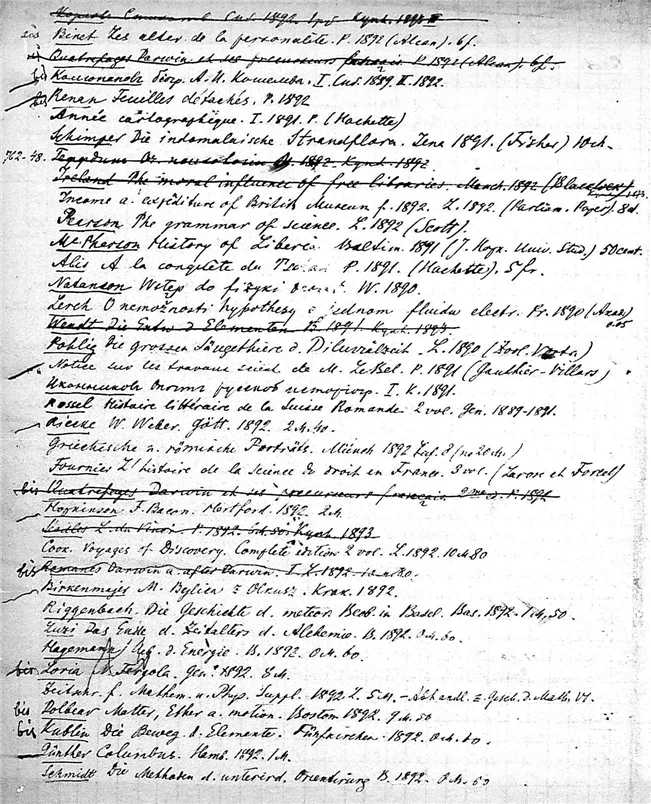 Спб. 1892. Купл. 1893 II
bis Binet Les alter. de la personalité. P. 1892 (Alcan). 6 f.
bis Quatrefages Darwin et ses precurseurs français P. 1892 (Alcan). 6 f.
bis Колюпановъ Биогр. А. И. Кошелева. I. Спб. 1889. II. 1892.
bis Renan Feuilles détachés. P. 1892
Année cartographique. I. 1891. P. (Hachette)
Schimper Die indomalaische Strandflora. Jena 1891. (Fischer) 10 M.
762-48. 1892. Купл. 1892
Ireland The moral influence of free libraries. Manch. 1892
Income a. expediture of British Museum f. 1892. L. 1892. (Parliam. Paper). 8 d.
Pearson The grammar of science. L. 1892 (Scott).
McPherson History of Liberia. Baltim. 1891 (J. Hopk. Univ. Stud.) 50 cent.
Alis A la conquête du P. 1891. (Hachette). 5 fr.
Natanson Wstęp do fizyki W. 1890.
Lerch O nemožnosti hypothesy o jednom fluidu electr. Pr. 1890 0.05
Wendt Die Entw. d. Elementen B. 1891. Купл. 1893.
Pohlig Die grossen Säugethiere d. Diluvialzeit. L. 1890 (Zool. Vortr.)
Notice sur les travaux scient. de M. LeBel. P. 1891 (Gauthier-Villars)
Иконниковъ Опытъ русской историогр. I. К. 1891.
Rossel Histoire littéraire de la Suisse Romande 2 vol. Gen. 1889-1891.
Riecke W. Weber. Gött. 1892. 2 M. 40.
Griechische u. römische Porträts. Münch 1892
Fournier L'histoire de la science du droit en France. 3 vol. (Larose et Forcel)
bis Quatrefages Darwin et ses precurseurs français 2me P. 1892
Hopkinson F. Bacon. Hertford. 1892. 2 M.
L. da Vinci. P. 1892. Купл. 1893
Cook. Voyages of Discovery. Complete edition 2 vol. L. 1892. 10 M 80
bis Romanes Darwin a. after Darwin. I. L. 1892
Birkenmajer M. Bylica z Olkusz. Krak. 1892.
Riggenbach. Die Geschichte d. meteor. Beob. in Basel. Bas. 1892. 1 M, 50.
Luzi Das Ende d. Zeitalters d. Alchemie. B. 1892. 0 M. 60.
Hagemann Aug. d. Energie. B. 1892. 0 M. 60.
bis Loria N. Fergola. Gen. 1892. 8 M.
Zeitschr. f. Mathem. u. Phys. Suppl. 1892 L. 5 M. - Abhandl. z. Gesch. d. Math. VI.
bis Dolbear Matter, Ether a. motion. Boston 1892. 9 M. 50
bis Kublin Die Beweg. d. Elemente. Fünfkirchen. 1892. 0 M. 80.
Günther Columbus. Hamb. 1892. 1 M.
Schmidt Die Methoden d. unterird. Orientirung B. 1892. 0 M. 60